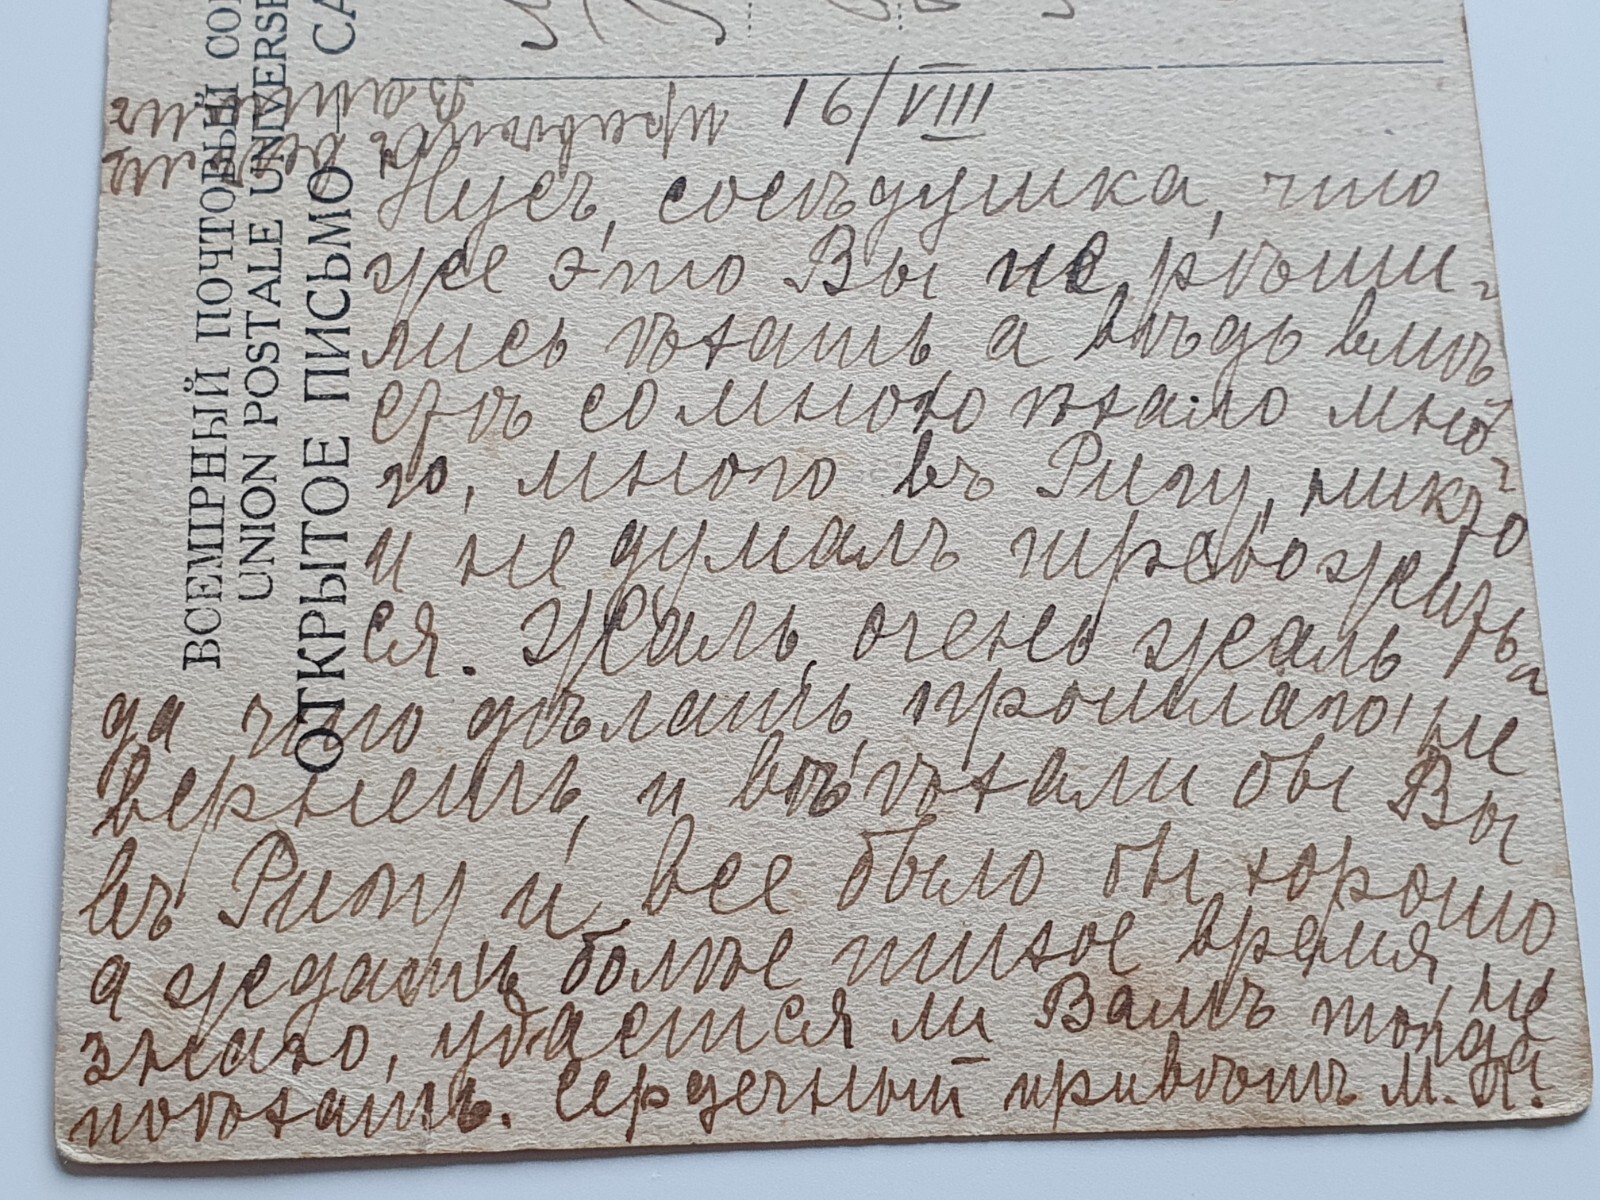 ВСЕМІРНЫЙ ПОЧТОВЫЙ СОЮ
UNION POSTALE UNIVERSE
ОТКРЫТОЕ ПИСЬМО — CA
16/VIII
Нусъ, сосѣдушка, что
же это Вы не рѣши-
лись ѣхать, а вѣдь вмѣ
стѣ со мною ѣхало мно-
го, много въ Ригу, никто
и не думалъ тревожить-
ся. Жаль, очень жаль
да что дѣлать, прошлаго не
вернешь, и въѣхали бы Вы
въ Ригу и все было бы хорошо
а ждать болѣе тихое время, не
знаю, удастся ли Вамъ тогда
поѣхать. Сердечный привѣтъ М. И.
привѣтъ
Вашимъ